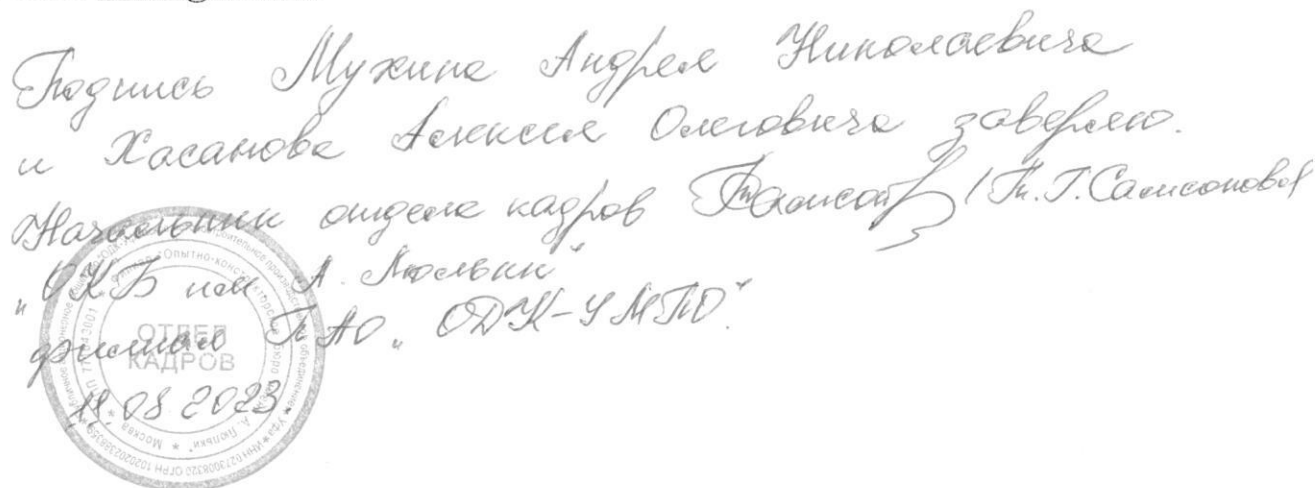 Подпись Мухина Андрея Николаевича
и Хасанова Алексея Олеговича заверяю.
Начальник отдела кадров / Т.Г. Самсонова/
"ОКБ им А. Люльки"
филиал ПАО "ОДК-УМПО"
ОТДЕЛ
КАДРОВ
11.08.2023